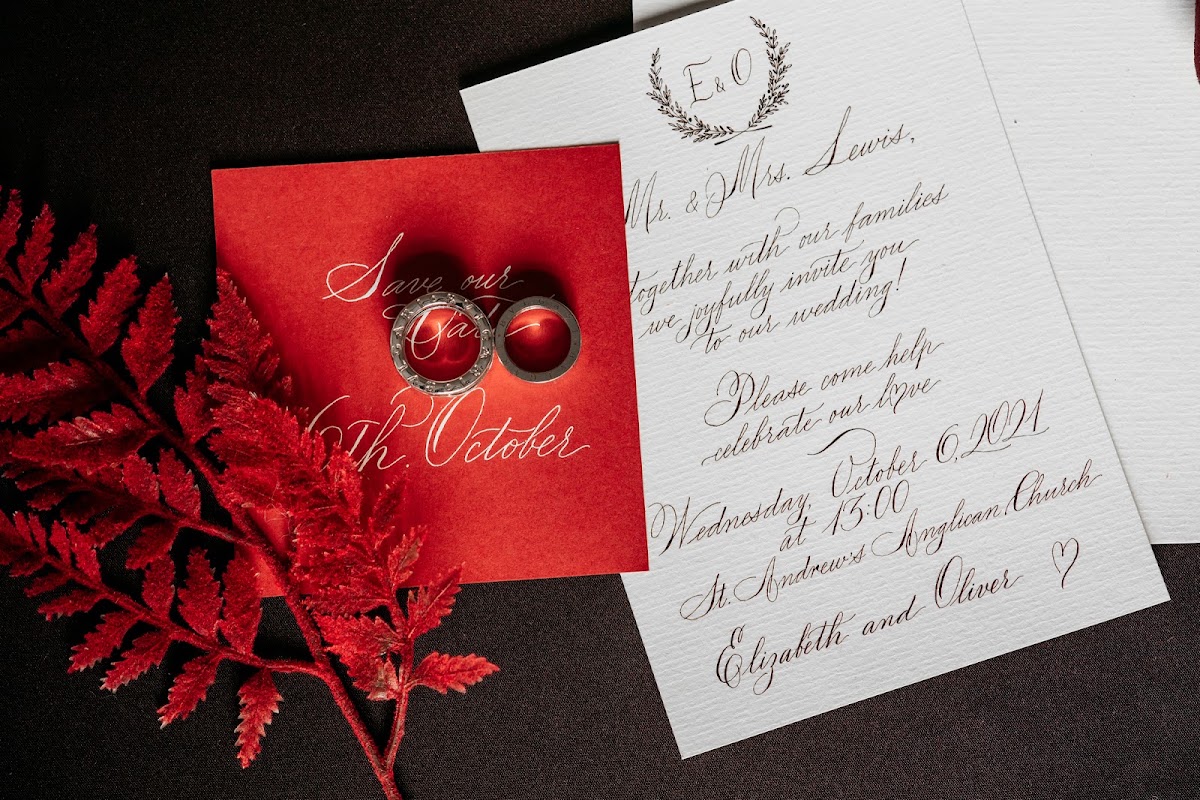 Save our
Date
6Th. October
E & O
Mr. & Mrs. Lewis,
together with our families
we joyfully invite you
to our wedding!
Please come help
celebrate our love
Wednesday, October 6, 2021
at 13:00
St. Andrew's Anglican Church
Elizabeth and Oliver